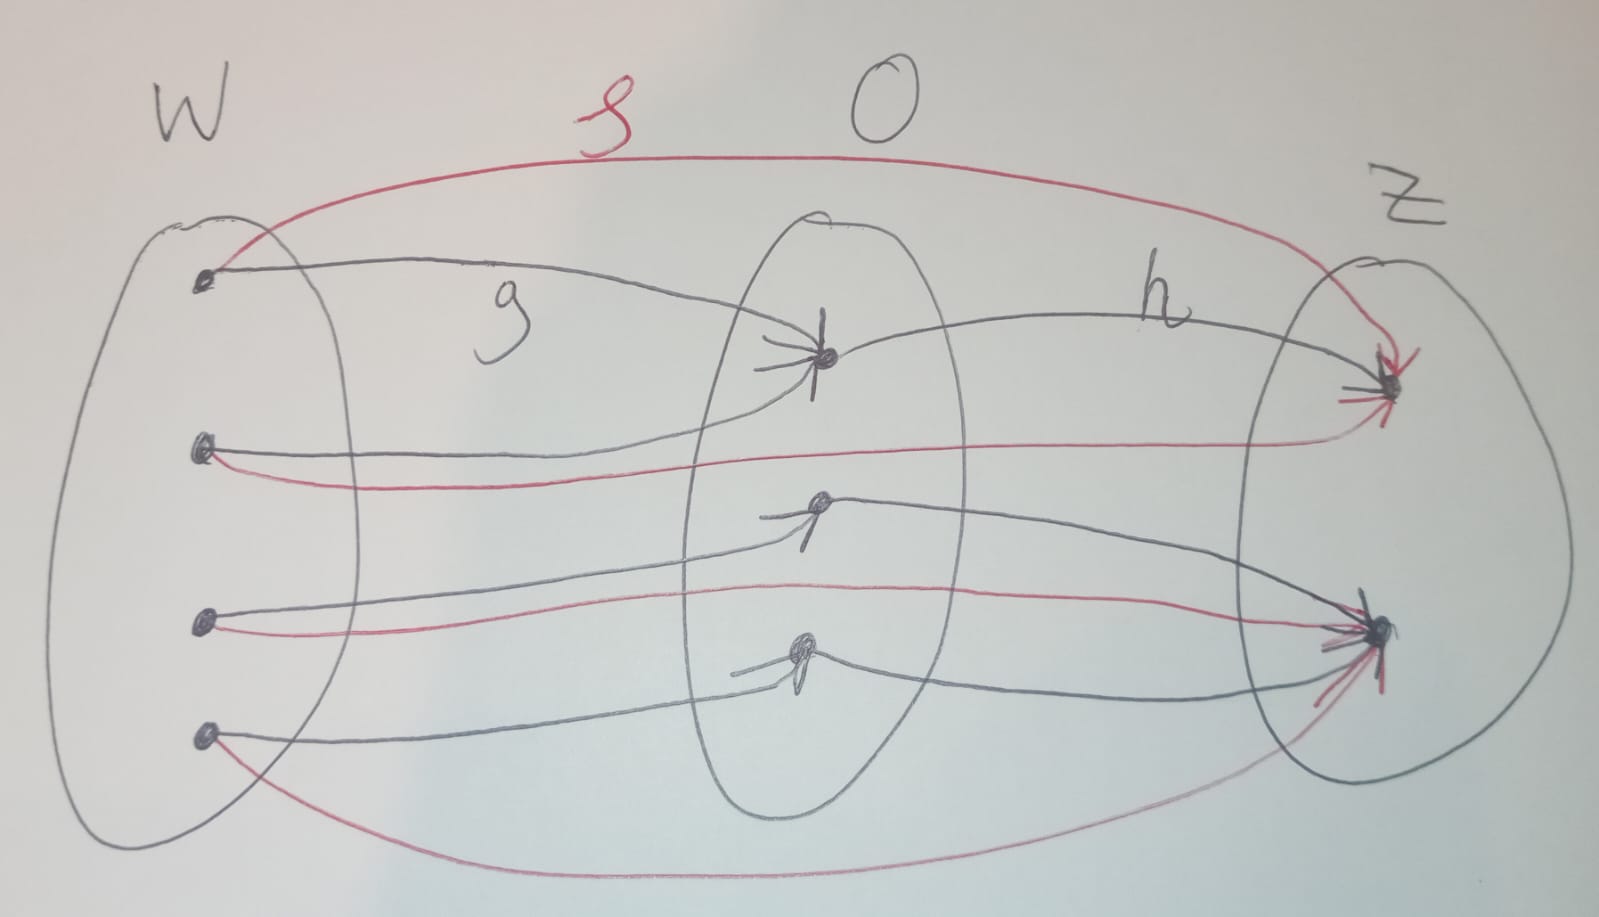 W f O
Z
g h